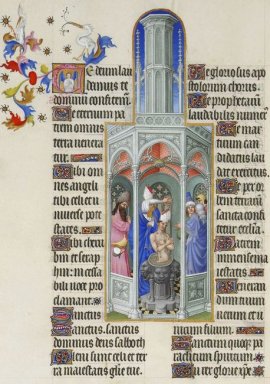 Te deum lau
demus te
dominum confitemur.
Te eternum pa
trem omnis
terra venera
tur.
Tibi om
nes angeli
tibi celi et u
niverse pote
states.
Tibi cheru
bin et seraph
hin: incessa
bili voce pro
clamant.
Sanctus.
Sanctus. Sanctus
dominus deus sabaoth
Pleni sunt celi et ter
ra maiestatis glorie tue.
Te gloriosus apo
stolorum chorus.
Te prophetarum
laudabilis numer
Te mar
tirum can
didatus lau
dat exercitus.
Te per
orbem ter
rarum
sancta confi
tetur ecclesia.
Patrem
immense ma
iestatis.
Veneran
dum tuum
verum et
unicum filium.
Sanctum quoque pa
raclitum spiritum
Tu rex glorie xpe.